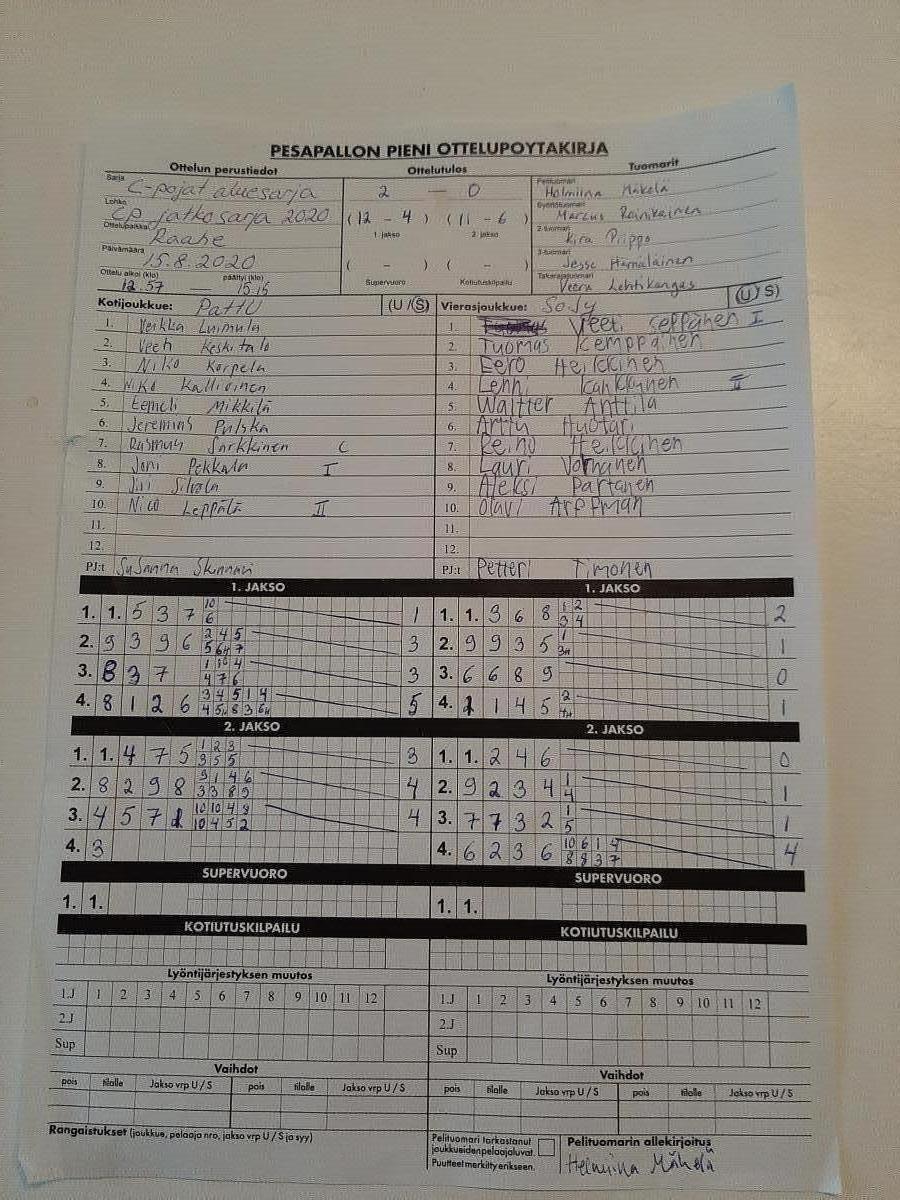 PESÄPALLON PIENI OTTELUPÖYTÄKIRJA
Ottelun perustiedot Ottelutulos Tuomarit
Sarja C-pojat aluesarja
Lohko CP jatkosarja 2020
Ottelupaikka Raahe
Päivämäärä 15.8.2020
Ottelu alkoi (klo) päättyi (klo)
12.57 — 15.15
2 — 0
(12 - 4) (11 - 6)
1. jakso 2. jakso
( - ) ( - )
Supervuoro Kotiutuskilpailu
Pelituomari Helmiina Mäkelä
Syöttötuomari Marcus Rainikainen
2-tuomari Kira Prippo
3-tuomari Jesse Hämäläinen
Takarajatuomari Veera Lehtikangas
Kotijoukkue: PattU (U/S)
1. Veikka Luimula
2. Veeti Keskitalo
3. Niko Korpela
4. Niko Kallioinen
5. Eemeli Mikkilä
6. Jeremias Pulska
7. Rasmus Sarkkinen C
8. Joni Pekkala I
9. Jiri Silvola
10. Nico Leppälä II
11.
12.
PJ:t Susanna
Vierasjoukkue: SoJy (U/S)
1. Veeti Seppänen I
2. Tuomas Kemppainen
3. Eero Heikkinen
4. Lenni Kankkunen II
5. Waltter Anttila
6. Arttu Huotari
7. Reino Heikkinen
8. Lauri Vornanen
9. Aleksi Partanen
10. Olavi Arffman
11.
12.
PJ:t Petteri Timonen
1. JAKSO
1. 1. 5 3 7 10 1
6
2. 9 3 9 6 2 4 5 3
5 6H 7
3. 8 3 7 1 10 4 3
4 7 6
4. 8 1 2 6 3 4 5 1 4 5
4 5H 8 3 6H
1. JAKSO
1. 1. 9 6 8 1 2 2
3 4
2. 9 9 3 5 1 1
3H
3. 6 6 8 9 0
4. 1 1 4 5 2 1
4H
2. JAKSO
1. 1. 4 7 5 1 2 3 3
3 5 5
2. 8 2 9 8 9 1 4 6 4
3 3 8 9
3. 4 5 7 1 10 10 4 9 4
10 4 5 2
4. 3
2. JAKSO
1. 1. 2 4 6 0
2. 9 2 3 4 1 1
4
3. 7 7 3 2 1 1
5
4. 6 2 3 6 10 6 1 4 4
8 8 3 7
SUPERVUORO
1. 1.
SUPERVUORO
1. 1.
KOTIUTUSKILPAILU
KOTIUTUSKILPAILU
Lyöntijärjestyksen muutos
1.J 1 2 3 4 5 6 7 8 9 10 11 12
2.J
Sup
Lyöntijärjestyksen muutos
1.J 1 2 3 4 5 6 7 8 9 10 11 12
2.J
Sup
Vaihdot
pois tilalle Jakso vrp U / S pois tilalle Jakso vrp U / S
Vaihdot
pois tilalle Jakso vrp U / S pois tilalle Jakso vrp U / S
Rangaistukset (joukkue, pelaaja nro, jakso vrp U / S ja syy)
Pelituomari tarkastanut
joukkueiden pelaajaluvat.
Puutteet merkitty erikseen.
Pelituomarin allekirjoitus
Helmiina Mäkelä